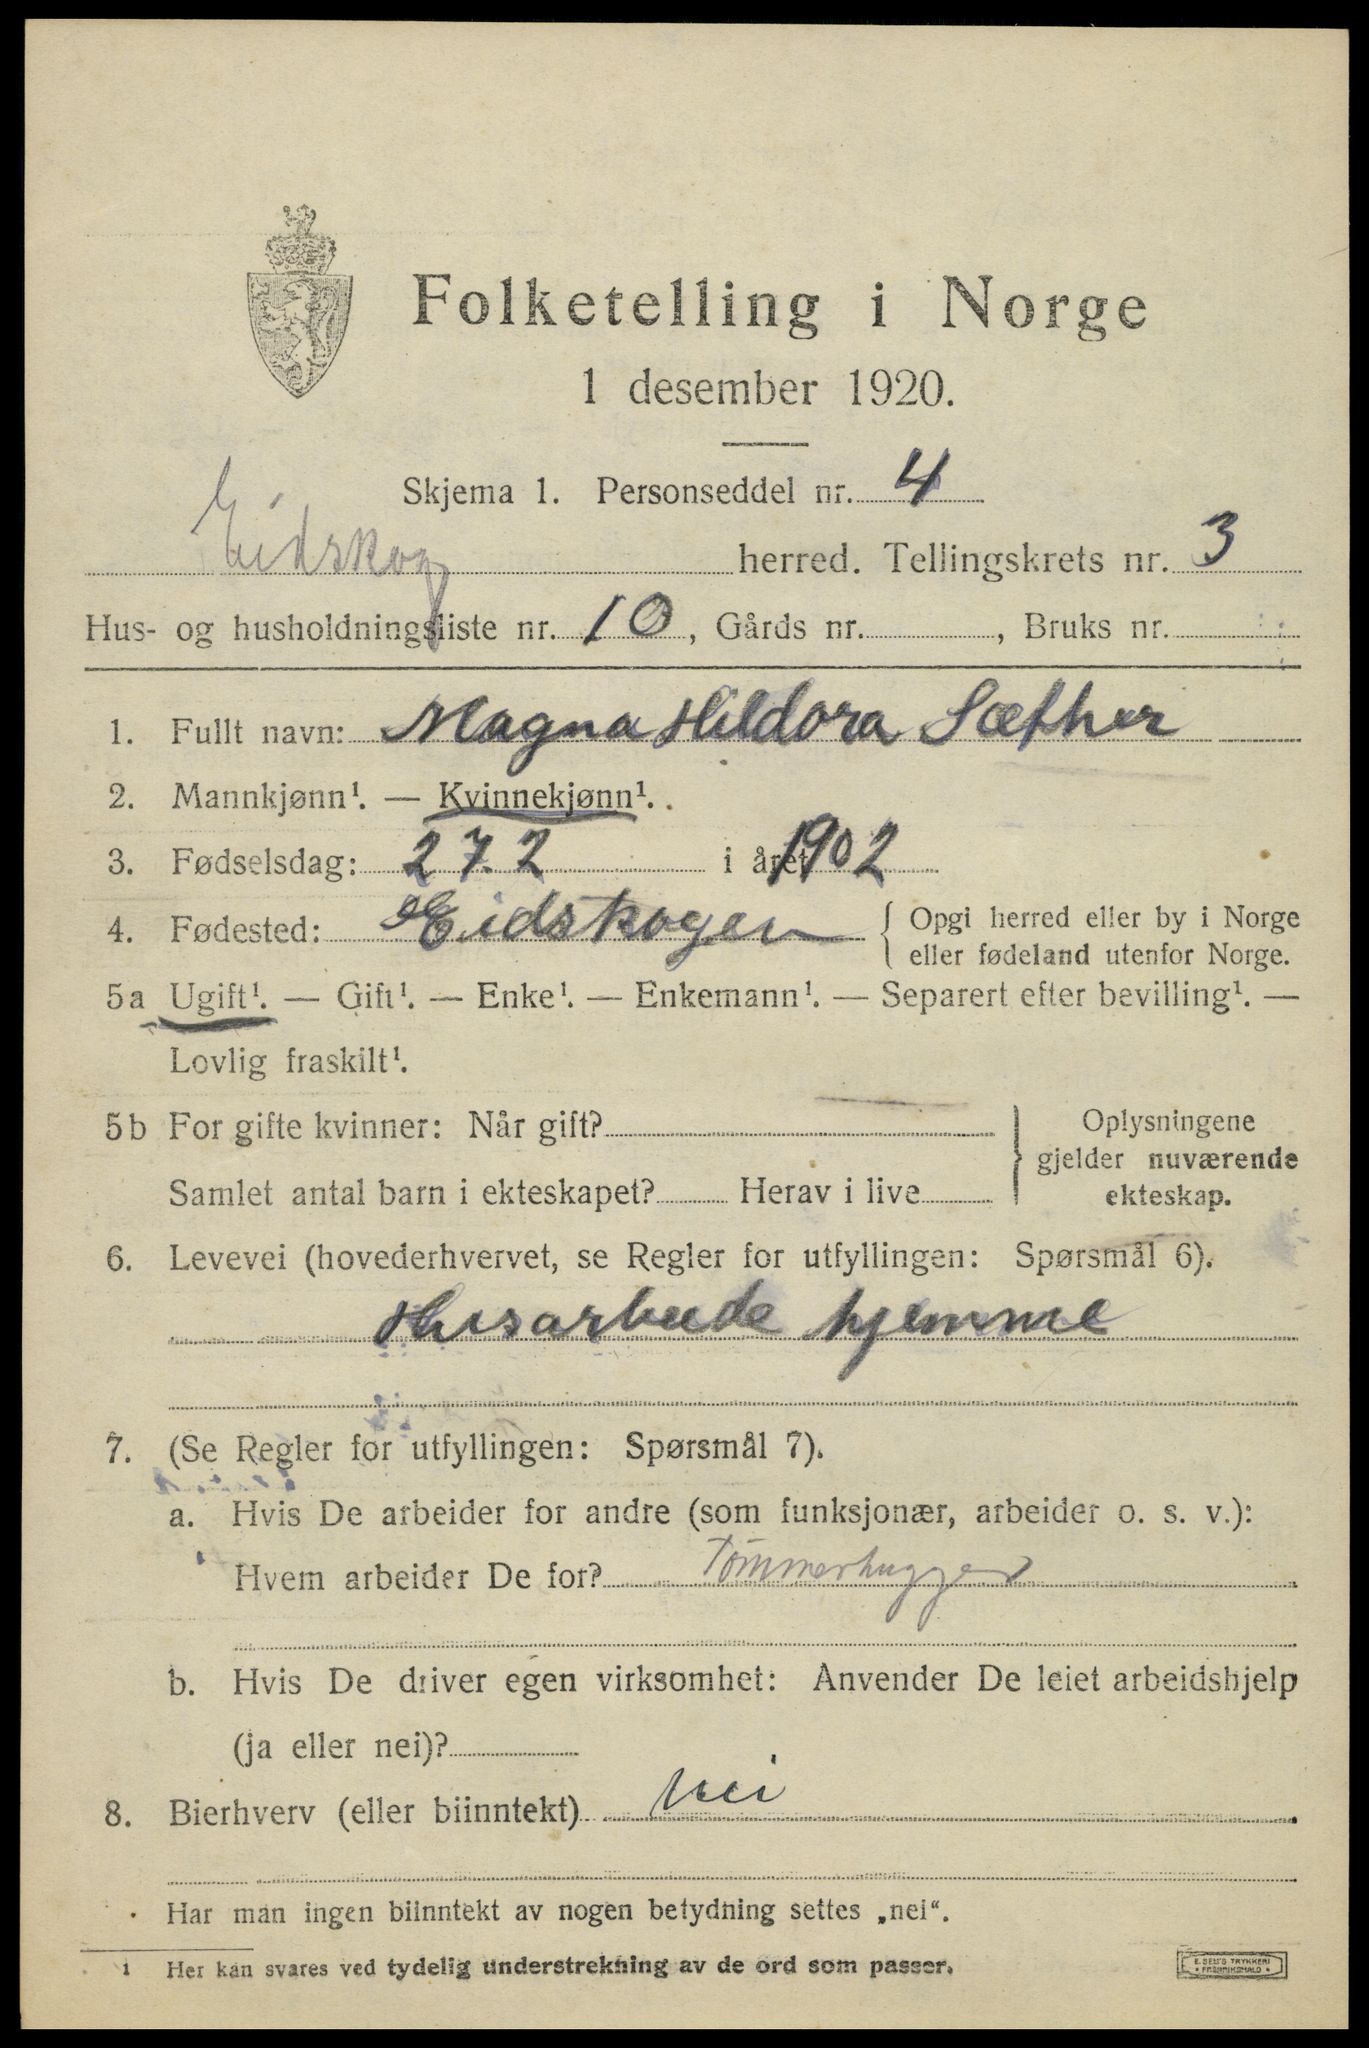 Folketelling i Norge
1 desember 1920.
Skjema 1. Personseddel nr. 4
Eidskog herred. Tellingskrets nr. 3
Hus- og husholdningsliste nr. 10, Gårds nr. , Bruks nr.
1. Fullt navn: Magna Hildora Sæther
2. Mannkjønn¹. — Kvinnekjønn¹.
3. Fødselsdag: 27.2 i året 1902
4. Fødested: Eidskogen { Opgi herred eller by i Norge
eller fødeland utenfor Norge.
5a Ugift¹. — Gift¹. — Enke¹. — Enkemann¹. — Separert efter bevilling¹. —
Lovlig fraskilt¹.
5b For gifte kvinner: Når gift? } Oplysningene
gjelder nuværende
Samlet antal barn i ekteskapet? Herav i live ekteskap.
6. Levevei (hovederhvervet, se Regler for utfyllingen: Spørsmål 6).
Husarbeide hjemme
7. (Se Regler for utfyllingen: Spørsmål 7).
a. Hvis De arbeider for andre (som funksjonær, arbeider o. s. v.):
Hvem arbeider De for? Tømmerhugger
b. Hvis De driver egen virksomhet: Anvender De leiet arbeidshjelp
(ja eller nei)?
8. Bierhverv (eller biinntekt) nei
Har man ingen biinntekt av nogen betydning settes „nei“.
1 Her kan svares ved tydelig understrekning av de ord som passer.
E. SEM'S TRYKKERI
• FREDRIKSHALD •